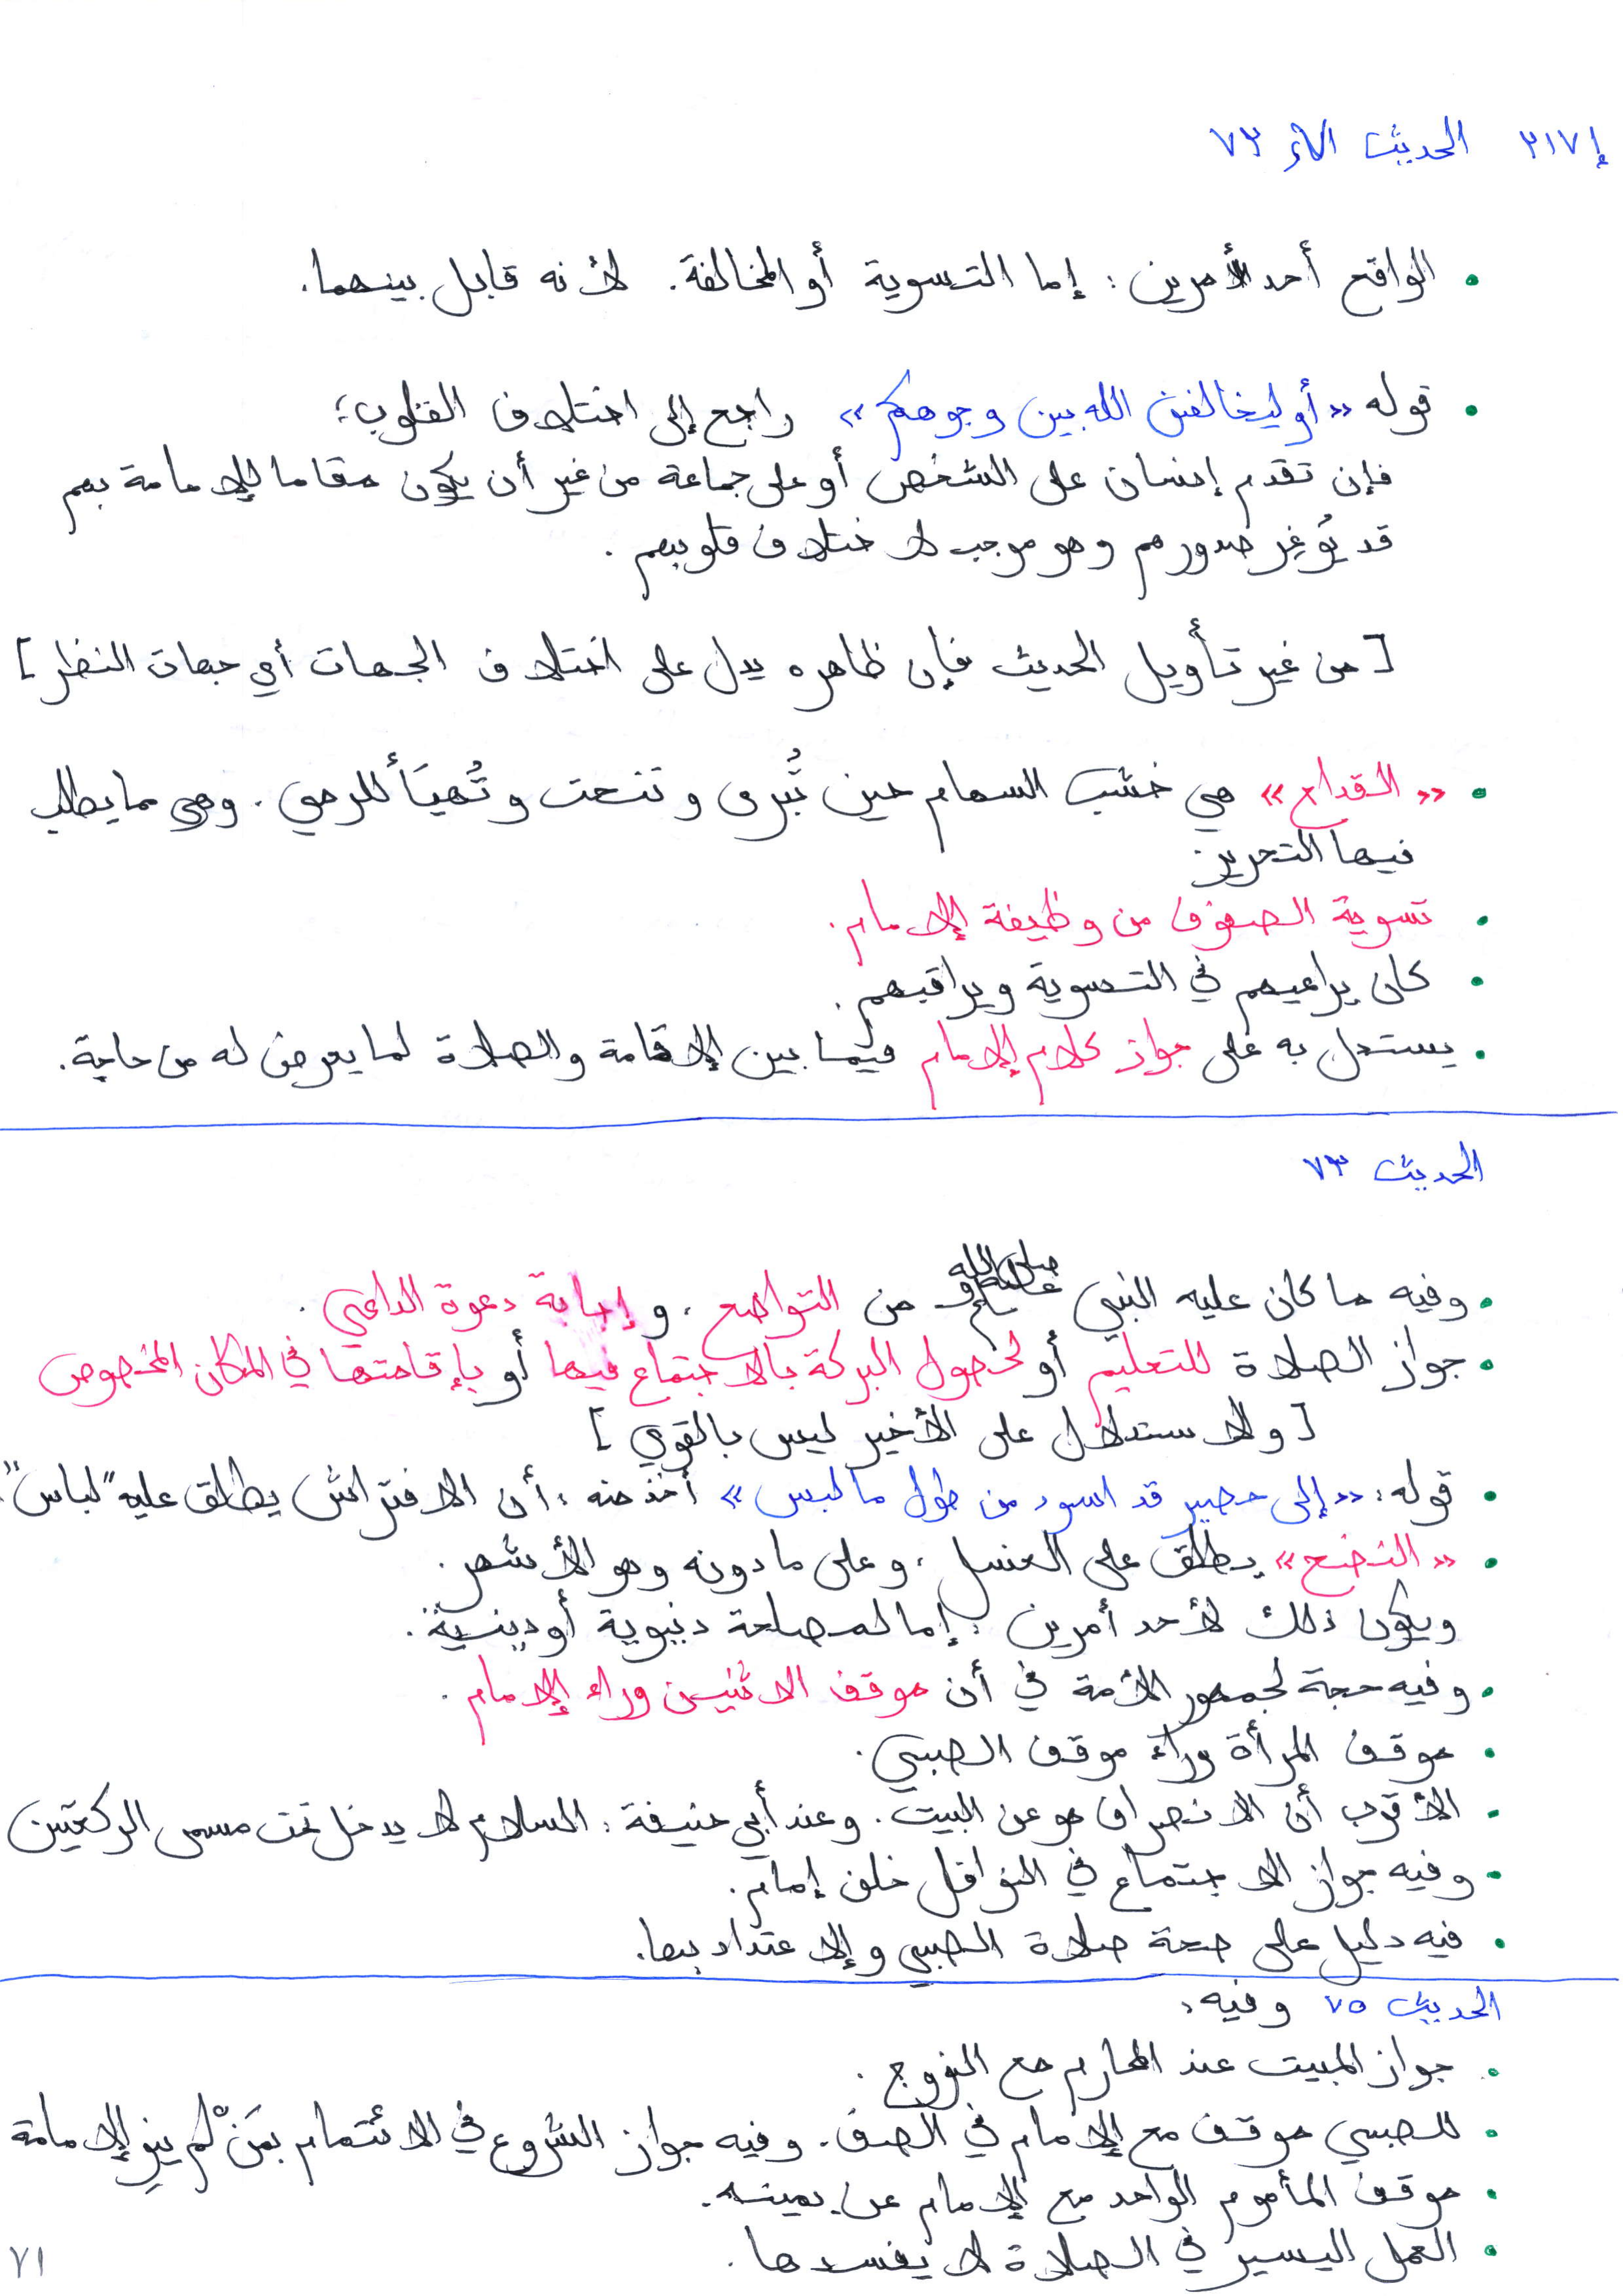 إ ٣١٧ الحديث ٧٣
• الواقع أحد الأمرين : إما التسوية أو المخالفة . لأنه قابل بينهما .
• قوله «أو ليخالفن الله بين وجوهكم» راجع إلى اختلاف القلوب ؛
فإن تقدم إنسان على الشخص أو على جماعة من غير أن يكون مقاما للإمامة بهم
قد يُوغِر صدورهم وهو موجب لاختلاف قلوبهم .
[ من غير تأويل الحديث فإن ظاهره يدل على اختلاف الجهات أي جهات النظر ]
• «القداح» هي خشب السهام حين تُبرى وتنحت وتُهيَأ للرمي . وهي مما يطلب
فيها التحرير .
• تسوية الصفوف من وظيفة الإمام .
• كان يراعيهم في التسوية ويراقبهم .
• يستدل به على جواز كلام الإمام فيما بين الإقامة والصلاة لما يعرض له من حاجة .
الحديث ٧٣
• وفيه ما كان عليه النبي صلى الله عليه وسلم من التواضع ، وإجابة دعوة الداعي .
• جواز الصلاة للتعليم أو لحصول البركة بالاجتماع فيها أو بإقامتها في المكان المخصوص
[ والاستدلال على الأخير ليس بالقوي ]
• قوله : «إلى حصير قد اسود من طول ما لبس» أخذ منه : أن الافتراش يطلق عليه "لباس" .
• «النضح» يطلق على الغسل ، وعلى ما دونه وهو الأشهر .
ويكون ذلك لأحد أمرين : إما لمصلحة دنيوية أو دينية .
• وفيه حجة لجمهور الأمة في أن موقف الاثنين وراء الإمام .
• موقف المرأة وراء موقف الصبي .
• الأقرب أن الانصراف هو عن البيت . وعند أبي حنيفة : السلام لا يدخل تحت مسمى الركعتين
• وفيه جواز الاجتماع في النوافل خلف إمام .
• فيه دليل على صحة صلاة الصبي والإعتداد بها .
الحديث ٧٥ وفيه :
• جواز المبيت عند المحارم مع الزوج .
• للصبي موقف مع الإمام في الصف . وفيه جواز الشروع في الائتمام بمَنْ لم ينوِ الإمامة
• موقف المأموم الواحد مع الإمام عن يمينه .
• العمل اليسير في الصلاة لا يفسدها .
٧١